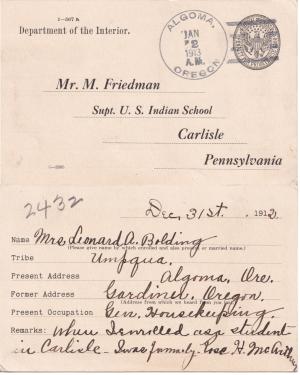 1-567 b
Department of the Interior.
ALGOMA,
JAN
2
1913
A.M.
OREGON
Mr. M. Friedman
Supt. U. S. Indian School
Carlisle
Pennsylvania
2432
Dec, 31st. 1912
Name Mrs. Leonard A. Bolding
(Please give name by which enrolled and also present or married name.)
Tribe Umpqua.
Present Address Algoma, Ore.
Former Address Gardiner, Oregon.
(Address from which we heard from you last)
Present Occupation Gen. Housekeeping.
Remarks: When I enrolled as a student
in Carlisle - I was formerly - Rose H.